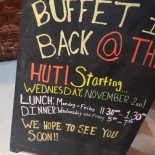 BUFFET I
BACK @ TH
HUT! Starting
WEDNESDAY, NOVEMBER 2nd!
LUNCH: Monday - Friday 11:30 - 1:30
DINNER: Wednesday
WE HOPE TO SEE YOU
SOON!!